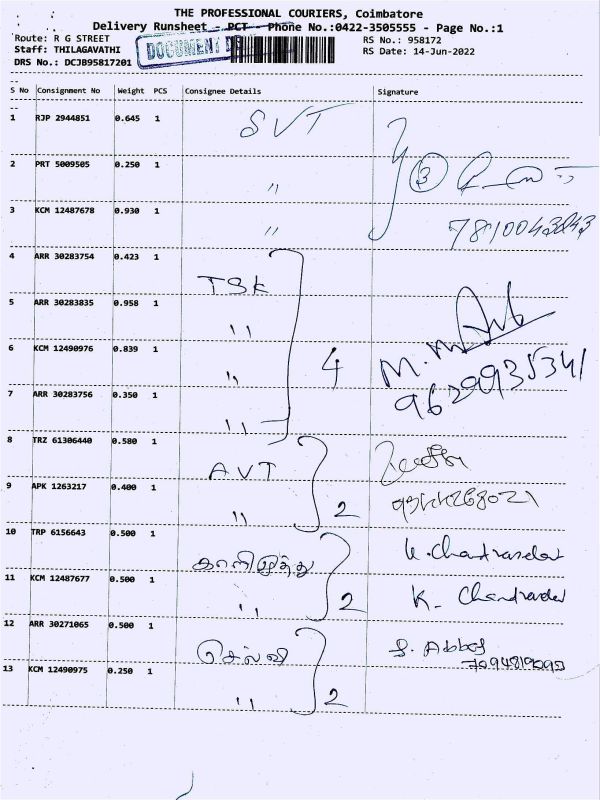 THE PROFESSIONAL COURIERS, Coimbatore
Delivery Runsheet - PCT - Phone No.:0422-3505555 - Page No.:1
Route: R G STREET
RS No.: 958172
Staff: THILAGAVATHI
RS Date: 14-Jun-2022
DRS No.: DCJB95817201
DOCUMENT
S No Consignment No Weight PCS Consignee Details Signature
1 RJP 2944851 0.645 1 SVT
2 PRT 5009505 0.250 1 " 3
3 KCM 12487678 0.930 1 "
4 ARR 30283754 0.423 1 TSK
5 ARR 30283835 0.958 1 "
6 KCM 12490976 0.839 1 " 4
9629935341
7 ARR 30283756 0.350 1 "
8 TRZ 61306440 0.580 1 AVT
9 APK 1263217 0.400 1 " 2
10 TRP 6156643 0.500 1 காளிமுத்து
11 KCM 12487677 0.500 1 " 2 K.
12 ARR 30271065 0.500 1 செல்வி S. Abbas
13 KCM 12490975 0.250 1 " 2